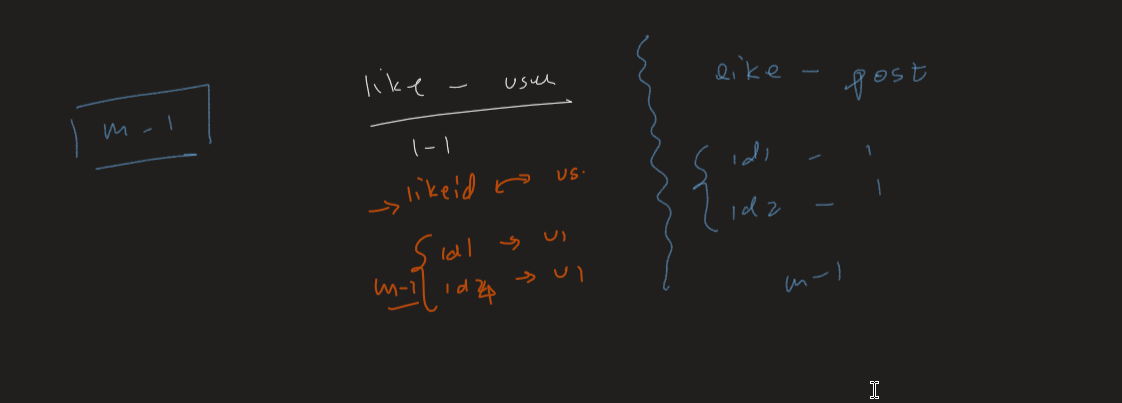 m - 1
like - user
1-1
→ likeid ↔ us.
id1 → u1
m-1 id4 → u1
like - post
id1 - 1
id2 - 1
m-1